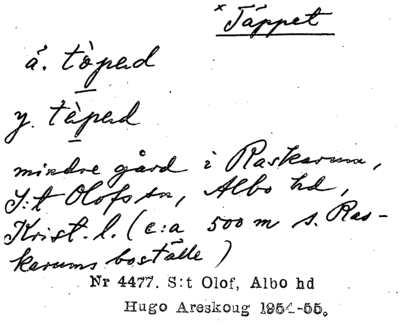 × Täppet
ä. tòped
y. tèped
mindre gård i Raskarum,
S:t Olofs sn, Albo hd,
Krist. l. (c:a 500 m s. Ras-
karums boställe)
Nr 4477. S:t Olof, Albo hd
Hugo Areskoug 1954-55.